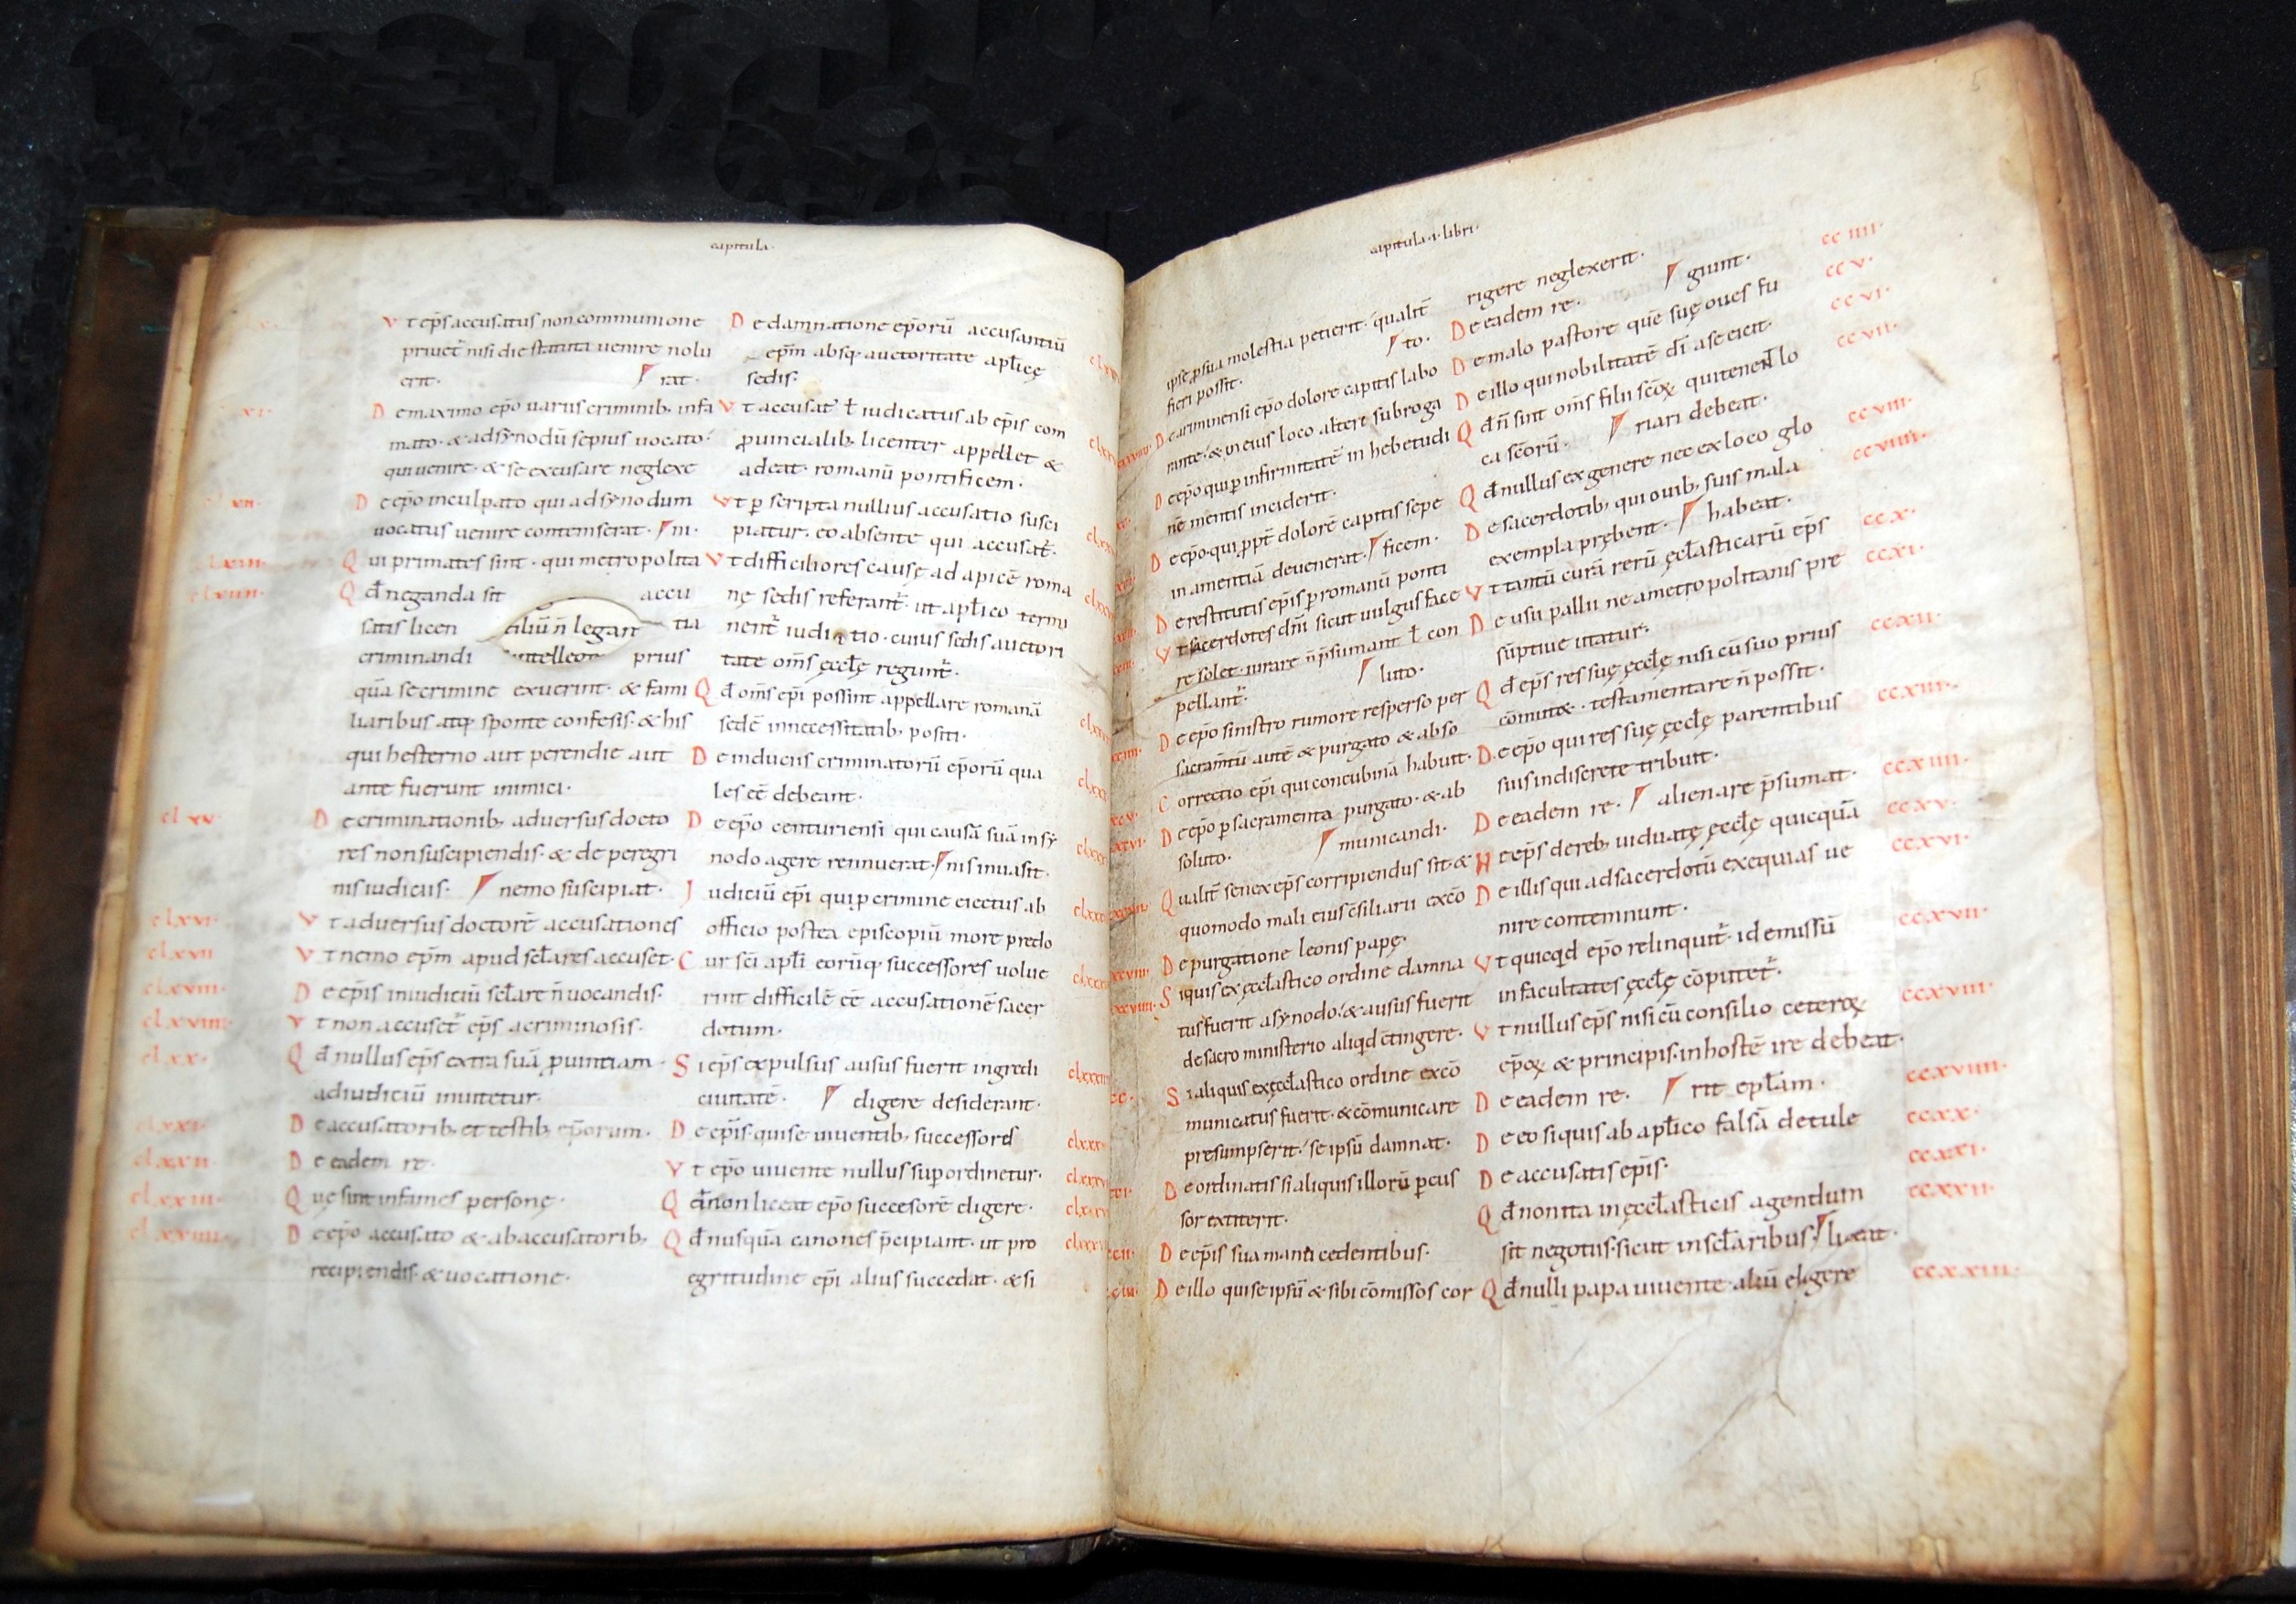 capitula·
V t ep̄s accusatus non communione
priuet̄ nisi die statuta uenire nolu
erit· rat·
D e maximo ep̄o uariis criminib; infa
mato· & ad synodū sepius uocato·
qui uenire· & se excusare neglexe
D e ep̄o inculpato qui ad synodum
uocatus uenire contemserat· ni·
Q ui primates sint· qui metropolita
Q đ neganda sit accu
satis licen tia
ciliū n̄ legan
criminandi prius
quā se crimine exuerint· & fami
liaribus atq; sponte confesis· & his
qui hesterno aut perendie aut
ante fuerunt inimici·
cl xv· D e criminationib; aduersus docto
res non suscipiendis· & de peregri
nis iudiciis· nemo suscipiat·
clxvi· V t aduersus doctorē accusationes
clxvii V t nemo ep̄m apud sc̄lares accuset·
clxviii· D e ep̄is in iudiciū sc̄lare n̄ uocandis·
clxviiii· V t non accuset̄ ep̄s a criminosis·
clxx· Q đ nullus ep̄s extra suā ꝓuintiam
ad iudiciū inuitetur·
clxxi· D e accusatorib; et testib; ep̄orum·
clxxii· D e eadem re·
clxxiii· Q ue sint infames personę·
clxxiiii· D e ep̄o accusato & ab accusatorib;
recipiendis· & uocatione·
D e damnatione ep̄orū accusantiū
ep̄m absq; auctoritate apl̄icę
sedis·
V t accusat̄ ł iudicatus ab ep̄is com
ꝓuincialib; licenter appellet &
adeat· romanū pontificem·
V t ꝑ scripta nullius accusatio susci
piatur· eo absente qui accusat̄·
V t difficiliores causę ad apicē roma
nę sedis referant̄· ut apl̄ico termi
nent̄ iudi tio· cuius sedis auctori
tate om̄s ęccl̄ę regunt̄·
Q đ om̄s ep̄i possint appellare romanā
sedē in necessitatib; positi·
D e induciis criminatorū ep̄orū qua
les eē debeant·
D e ep̄o centuriensi qui causā suā in sy
nodo agere rennuerat· nis inuasit·
J udiciū ep̄i qui ꝑ crimine eiectus ab
officio postea episcopiū more predo
C ur sc̄i apl̄i eorūq; successores uolue
rint difficilē eē accusationē sacer
dotum·
S i ep̄s expulsus ausus fuerit ingredi
ciuitatē· eligere desiderant·
D e ep̄is· qui se uiuentib; successores
V t ep̄o uiuente nullus suꝑordinetur·
Q đ non liceat ep̄o succesorē eligere·
Q đ nusquā canones p̄cipiant· ut pro
egritudine ep̄i alius succedat· & si
capitula·i·libri·
ipse ꝓ sua molestia petierit· qualit̄
fieri possit· to·
D e ariminensi ep̄o dolore capitis labo
rante· & in eius loco altere subroga
D e ep̄o qui ꝑ infirmitatē in hebetudi
ne mentis inciderit·
D e ep̄o· qui ꝓpt̄ dolorē capitis sepe
in amentiā deuenerat· ficem·
D e restitutis ep̄is ꝑ romanū ponti
V t sacerdotes dn̄i sicut uulgus face
re solet· iurare n̄ p̄sumant ł con
pellant̄· luto·
D e ep̄o sinistro rumore resperso per
sacram̄tū autē & purgato & abso
C orrectio ep̄i qui concubinā habuit·
D e ep̄o ꝑ sacramenta purgato· & ab
soluto· municandi·
Q ualit̄ senex ep̄s corripiendus sit· &
quomodo mali eius c̄siliarii exc̄o
D e purgatione leonis papę·
S iquis ex ęccl̄astico ordine damna
tus fuerit a synodo· & ausus fuerit
de sacro ministerio aliq̄d c̄tingere·
S i aliquis ex ęccl̄astico ordine exc̄o
municatus fuerit· & cōmunicare
presumpserit· se ipsū damnat·
D e ordinatis si aliquis illorū ꝑcus
sor extiterit·
D e ep̄is sua manu cedentibus·
D e illo qui se ipsū & sibi cōmissos cor
rigere neglexerit· cc iiii·
D e eadem re· giunt· cc v·
D e malo pastore que suę oues fu cc vi·
D e illo qui nobilitatē dī a se eicit· cc vii·
Q đ n̄ sint om̄s filii sc̄oꝝ qui tenent lo
ca sc̄orū· riari debeat· cc viii·
Q đ nullus ex genere nec ex loco glo
D e sacerdotib; qui ouib; suis mala cc viiii·
exempla prębent· habeat·
V t tantū curā rerū ęccl̄asticarū ep̄s cc x·
D e usu pallii ne a metropolitanis pre cc xi·
sūptiue utatur·
Q đ ep̄s res suę ęccl̄ę nisi cū suo prius ccxii·
cōmutet· testamentare n̄ possit·
D e ep̄o qui res suę ęccl̄ę parentibus ccxiii·
suis indiscrete tribuit·
D e eadem re· alienare p̄sumat· ccxiiii·
N e ep̄s de reb; uiduatę ęccl̄ę quicquā ccxv·
D e illis qui ad sacerdotū exequias ue ccxvi·
nire contemnunt·
V t quicq̄d ep̄o relinquit̄· id emissū ccxvii·
in facultates ęccl̄ę cōputet̄·
V t nullus ep̄s nisi cū consilio ceteroꝝ ccxviii·
ep̄oꝝ & principis· in hostē ire debeat·
D e eadem re· rit epl̄am· ccxviiii·
D e eo siquis ab apl̄ico falsā detule ccxx·
D e accusatis ep̄is· ccxxi·
Q đ non ita in ęccl̄asticis agendum ccxxii·
sit negotiis· sicut in sc̄laribus· liceat·
Q đ nulli papa uiuente aliū eligere ccxxiii·
5